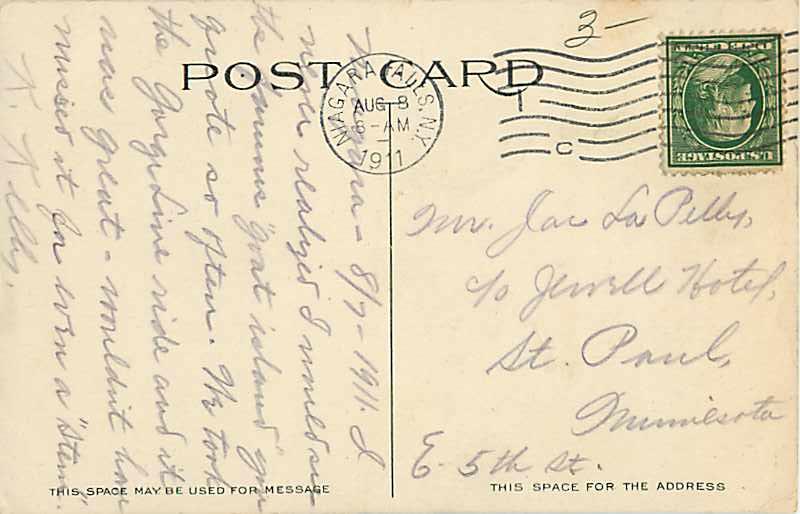 POST CARD
NIAGARA FALLS N.Y.
AUG 8
8-AM
1911
1
C
3-
U.S. POSTAGE
Niagara - 8/7-1911. I
never realized I would see
the famous "Goat island" you
quote so often. We took
the Gorge Line ride and it
was great - wouldn't have
missed it for even a "Stem."
K. Kelly.
Mr. Jac La Pelly,
c/o Jewell Hotel,
St. Paul,
Minnesota
E. 5th St.
THIS SPACE MAY BE USED FOR MESSAGE
THIS SPACE FOR THE ADDRESS